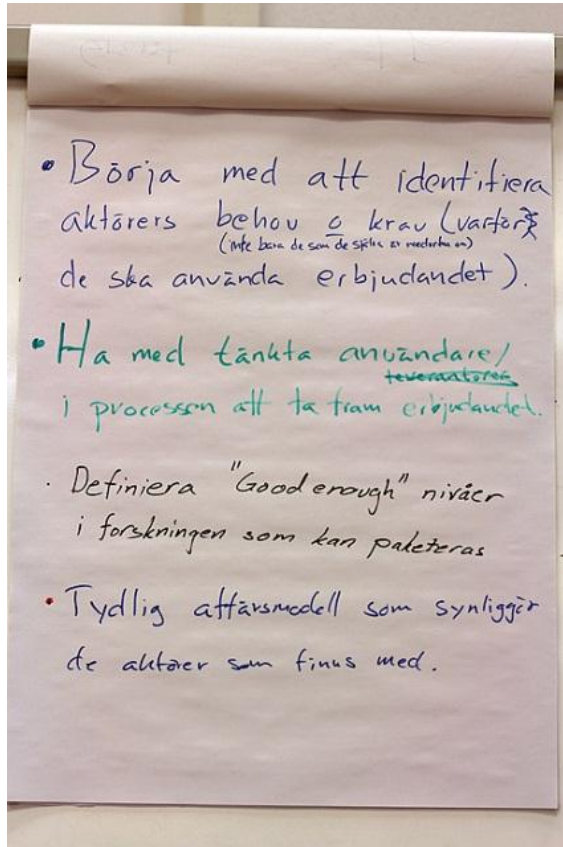 • Börja med att identifiera
aktörers behov o krav (varför
(inte bara de som de själva är medvetna om)
de ska använda erbjudandet).
• Ha med tänkta användare/
leverantörer
i processen att ta fram erbjudandet.
· Definiera "Good enough" nivåer
i forskningen som kan paketeras
• Tydlig affärsmodell som synliggör
de aktörer som finns med.